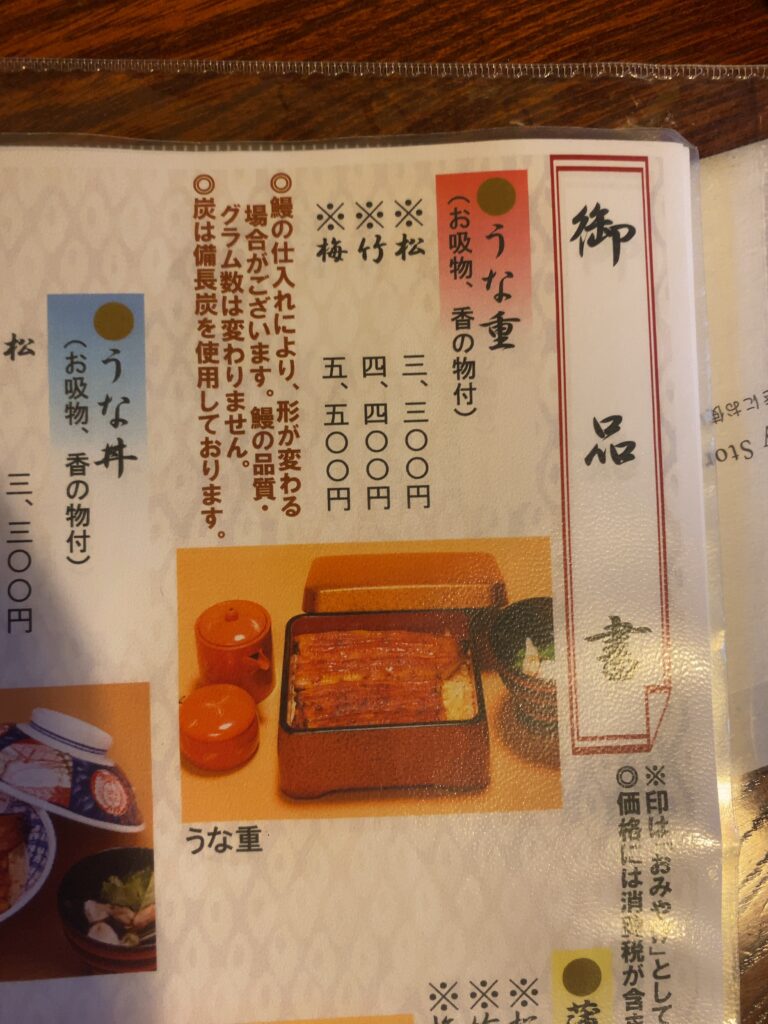 御品書
※印は「おみやげ」として
◎価格には消費税が含ま
うな重
(お吸物、香の物付)
※松 三、三〇〇円
※竹 四、四〇〇円
※梅 五、五〇〇円
◎鰻の仕入れにより、形が変わる
場合がございます。鰻の品質・
グラム数は変わりません。
◎炭は備長炭を使用しております。
うな重
うな丼
(お吸物、香の物付)
松 三、三〇〇円
蒲
※松
※竹
※梅